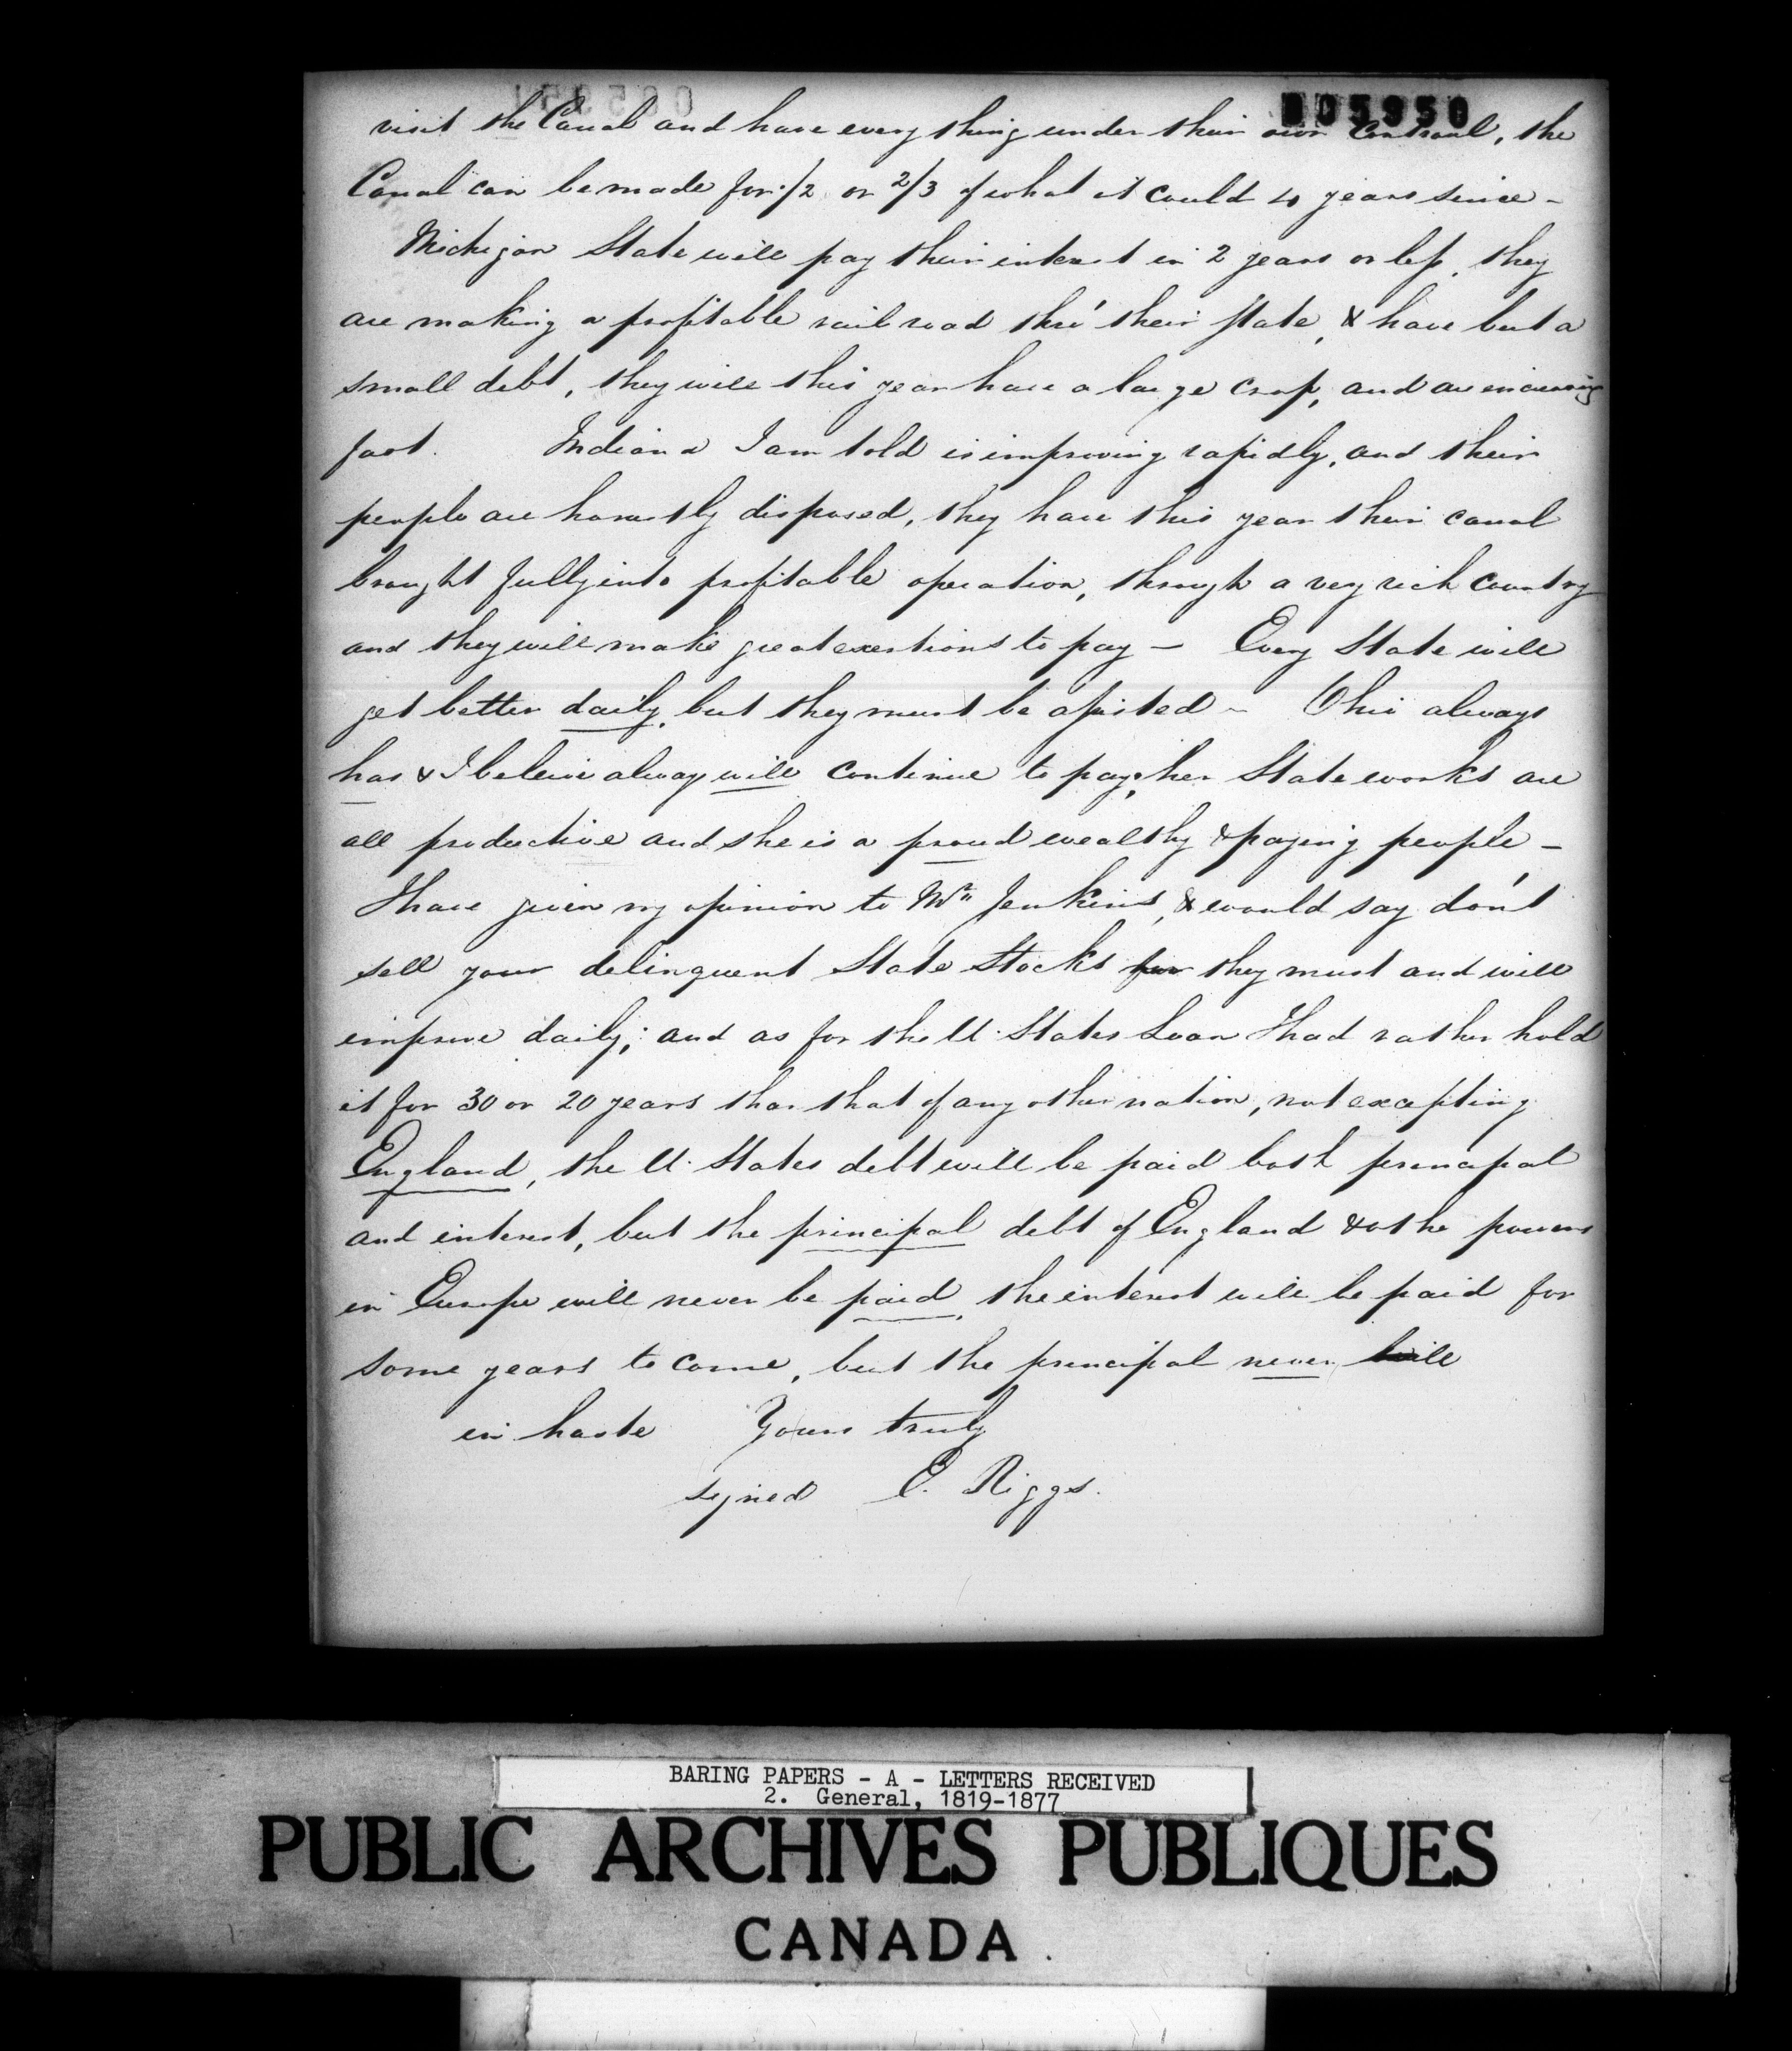 005950
visit the Canal and have every thing under their own controul, the
Canal can be made for 1/2 or 2/3 of what it could 4 years since -
Michigan State will pay their interest in 2 years or less, they
are making a profitable rail road thro' their State, & have but a
small debt, they will this year have a large crop, and are increasing
fast. Indiana I am told is improving rapidly, and their
people are honestly disposed, they have this year their canal
brought fully into profitable operation, through a very rich Country
and they will make great exertions to pay - Every State will
get better daily, but they must be assisted - Ohio always
has & I beleive alway will continue to pay, her State works are
all productive and she is a proud wealthy & paying people -
I have given my opinion to Mr Jenkins, & would say don't
sell your delinquent State Stocks for they must and will
improve daily; and as for the U. States Loan I had rather hold
it for 30 or 20 years than that of any other nation, not excepting
England, the U. States debt will be paid both principal
and interest, but the principal debt of England & othe powers
in Europe will never be paid, the interest will be paid for
some years to come, but the principal never will
in haste Yours truly
signed E. Riggs.
BARING PAPERS - A - LETTERS RECEIVED
2. General, 1819-1877
PUBLIC ARCHIVES PUBLIQUES
CANADA